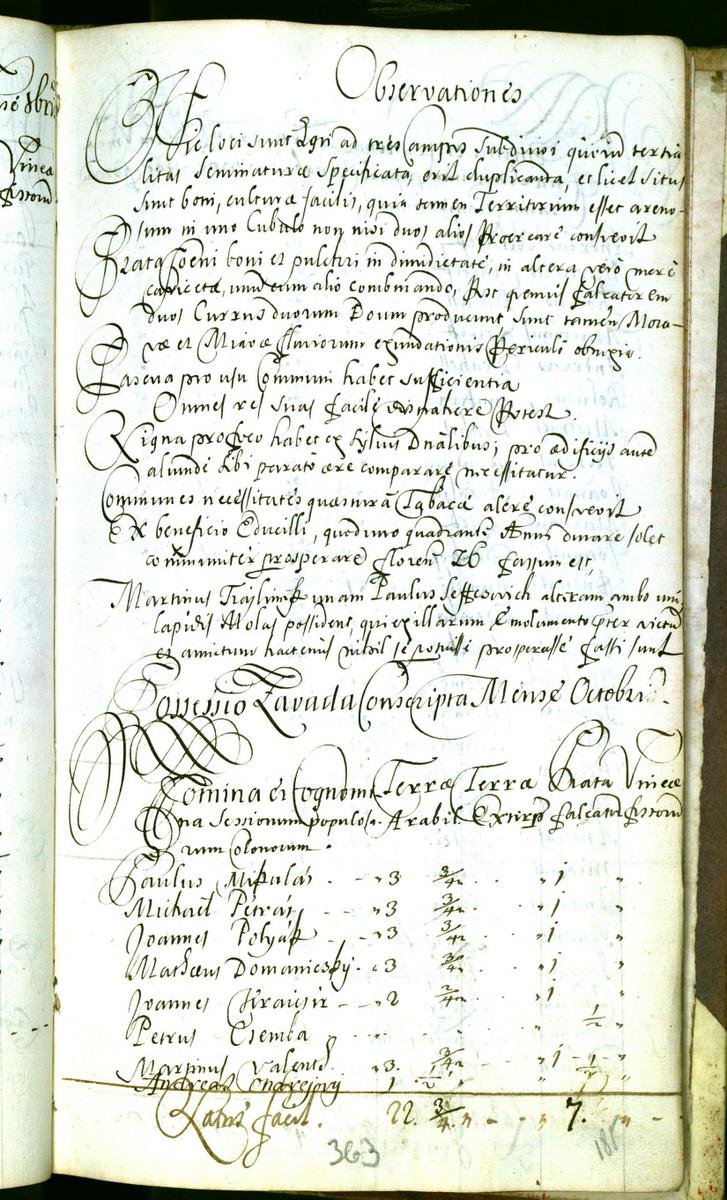 Observationes
Hic loci sunt Agri ad tres Campos subdivisi quorum tertia
litas Seminaturæ Specificata, erit duplicanda, et licet situs
sint boni, culturæ facilis, quia tamen Territorium esset areno-
sum in uno Cubulo non nisi duos alios Procreare consvevit
Prata foeni boni et pulchri in dimidietate, in altera vero mere
caricetæ, unum cum alio combinando, Post quemvis falcatorem
duos Currus duorum Boum producunt sunt tamen Mora-
væ et Miavæ fluviorum exundationis Periculi obnoxia.
Pascua pro usu Communi habet sufficientia
Omnes res suas facile distrahere Potest.
Ligna pro foco habet ex sylvis Dnalibus, pro ædificijs autem
aliunde sibi parato ære comparare necessitatur.
Communes necessitates quæstura Tabacæ alere consvevit
Ex beneficio Educilli, quod uno quadrante Anni durare solet
communiter prosperare floren 26 fassum est,
Martinus unam Paulus alteram ambo uni
lapidis Molas possident, qui ex illarum Emolumento præter victum
et amictum hactenus nihil se potuisse prosperasse fassi sunt
Possessio Zavada Conscripta Mense Octobri.
Nomina et Cognomi Terræ Terræ Prata Vineæ
na Sessionum populosa. Arabil. Extirp. falcatorum fossorum
rum Colonorum.
Paulus Mikulas . - „ 3 3/4 . . „ 1 „
Michael Petras . - „ 3 3/4 . . „ 1 „
Joannes Polyak - „ 3 3/4 . . „ 1 „
Mathæus Domaniczky . „ 3 3/4 . . „ 1 „
Joannes - „ 2 2/4 . . „ 1 „
Petrus Csemba „ . „ 1/2 „
Martinus Valent „ 3. 3/4 - „ 1 - 1/2 - „
Andreas Ondrejovy 1 1/2 „ „ „
Latus facit. 22. 3/4. „ - „ 7. „ -
363